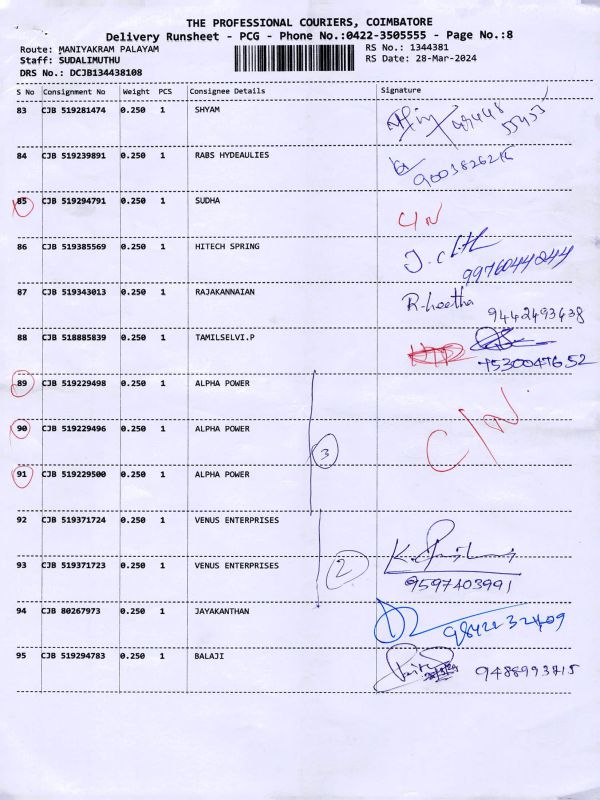 THE PROFESSIONAL COURIERS, COIMBATORE
Delivery Runsheet - PCG - Phone No.:0422-3505555 - Page No.:8
Route: MANIYAKRAM PALAYAM RS No.: 1344381
Staff: SUDALIMUTHU RS Date: 28-Mar-2024
DRS No.: DCJB134438108
S No Consignment No Weight PCS Consignee Details Signature
83 CJB 519281474 0.250 1 SHYAM
84 CJB 519239891 0.250 1 RABS HYDEAULIES
9003826216
85 CJB 519294791 0.250 1 SUDHA
C/N
86 CJB 519385569 0.250 1 HITECH SPRING
9976044244
87 CJB 519343013 0.250 1 RAJAKANNAIAN
9442493638
88 CJB 518885839 0.250 1 TAMILSELVI.P
7530047652
89 CJB 519229498 0.250 1 ALPHA POWER
90 CJB 519229496 0.250 1 ALPHA POWER
3 C/N
91 CJB 519229500 0.250 1 ALPHA POWER
92 CJB 519371724 0.250 1 VENUS ENTERPRISES
93 CJB 519371723 0.250 1 VENUS ENTERPRISES
2
9597403991
94 CJB 80267973 0.250 1 JAYAKANTHAN
95 CJB 519294783 0.250 1 BALAJI
9488993715